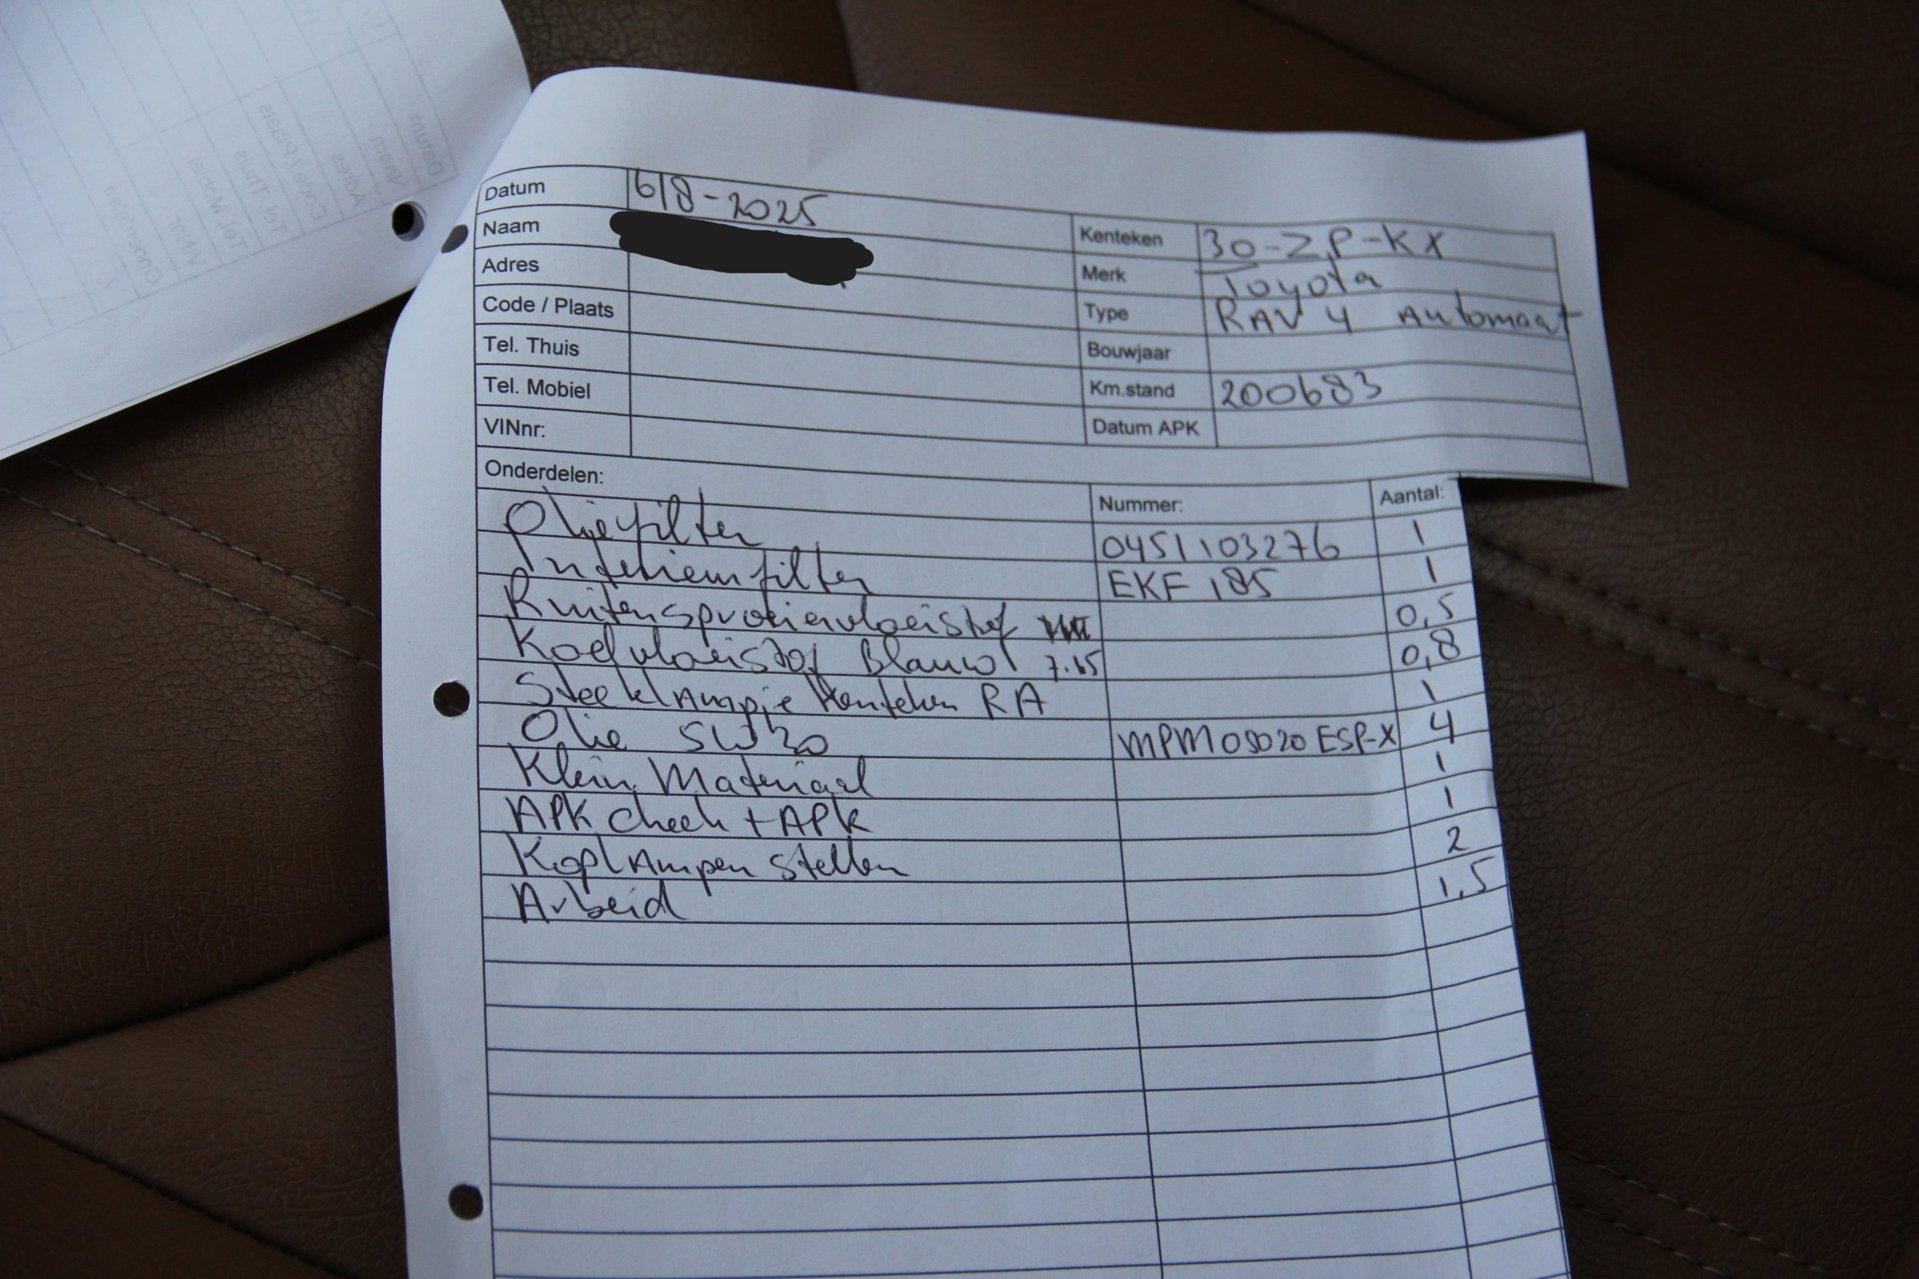 Datum 6/8-2025
Naam
Kenteken 30-ZP-KX
Adres
Merk Toyota
Code / Plaats
Type RAV 4 Automaat
Tel. Thuis
Bouwjaar
Tel. Mobiel
Km.stand 200683
VINnr:
Datum APK
Onderdelen: Nummer: Aantal:
Oliefilter 0451103276 1
Interieurfilter EKF 185 1
Ruitensproeiervloeistof 0,5
Koelvloeistof Blauw 7.65 0,8
Steeklampje Kenteken RA 1
Olie 5W20 MPM05020ESP-X 4
Klein Materiaal 1
APK check + APK 1
Koplampen stellen 2
Arbeid 1,5
Datum
Naam
Adres
Code / Plaats
Tel. Thuis
Tel. Mobiel
VINnr:
Onderdelen